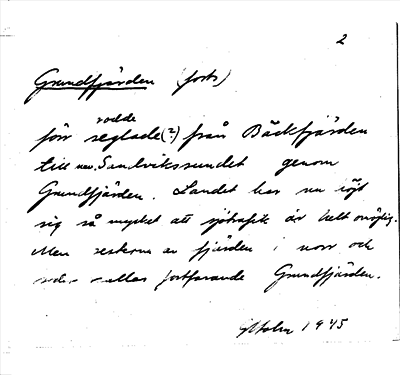 2
Grundfjärden (forts)
rodde
förr seglade (?) från Bäckfjärden
till nuv. Sandvikssundet genom
Grundfjärden. Landet har nu höjt
sig så mycket att sjötrafik är helt omöjlig.
Men resterna av fjärden i norr och
söder kallas fortfarande Grundfjärden.
Holm 1945